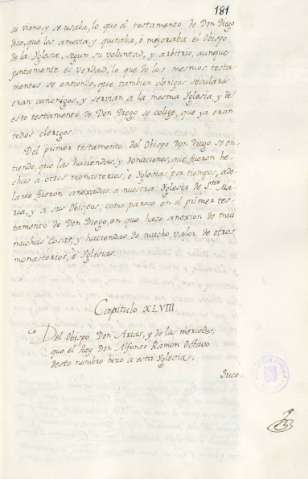 181
se viene, y se usaba, lo que el testamento de Don Diego
dice, que los amovía, y quitaba, o mejoraba el Obispo
de la Iglesia, segun su voluntad, y arbitrio, aunque
juntamente es verdad, lo que de los mesmos testa-
mentos se entiende, que tambien clerigos seculares
eran canonigos, y servian a la mesma Iglesia, y de
este testamento de Don Diego se colige, que ya eran
todos clerigos.
Del primer testamento del Obispo Don Diego se en-
tiende, que las haciendas, y donaciones, que fueron he-
chas a otros monasterios, e Iglesia por tiempos, ade-
lante fueron anexadas a nuestra Iglesia de Sta Ma-
ria, y a sus Obispos, como parece en el primer tes-
tamento de Don Diego, en que hace anexion de mui
muchas cosas, y haciendas de mucho valor de otros
monasterios, e Iglesias.
Capitulo XLVIII
Del Obispo Don Arias, y de las mercedes,
que el Rey Don Alfonso Ramon Octavo
deste nombre hizo a esta Iglesia.
Suce-